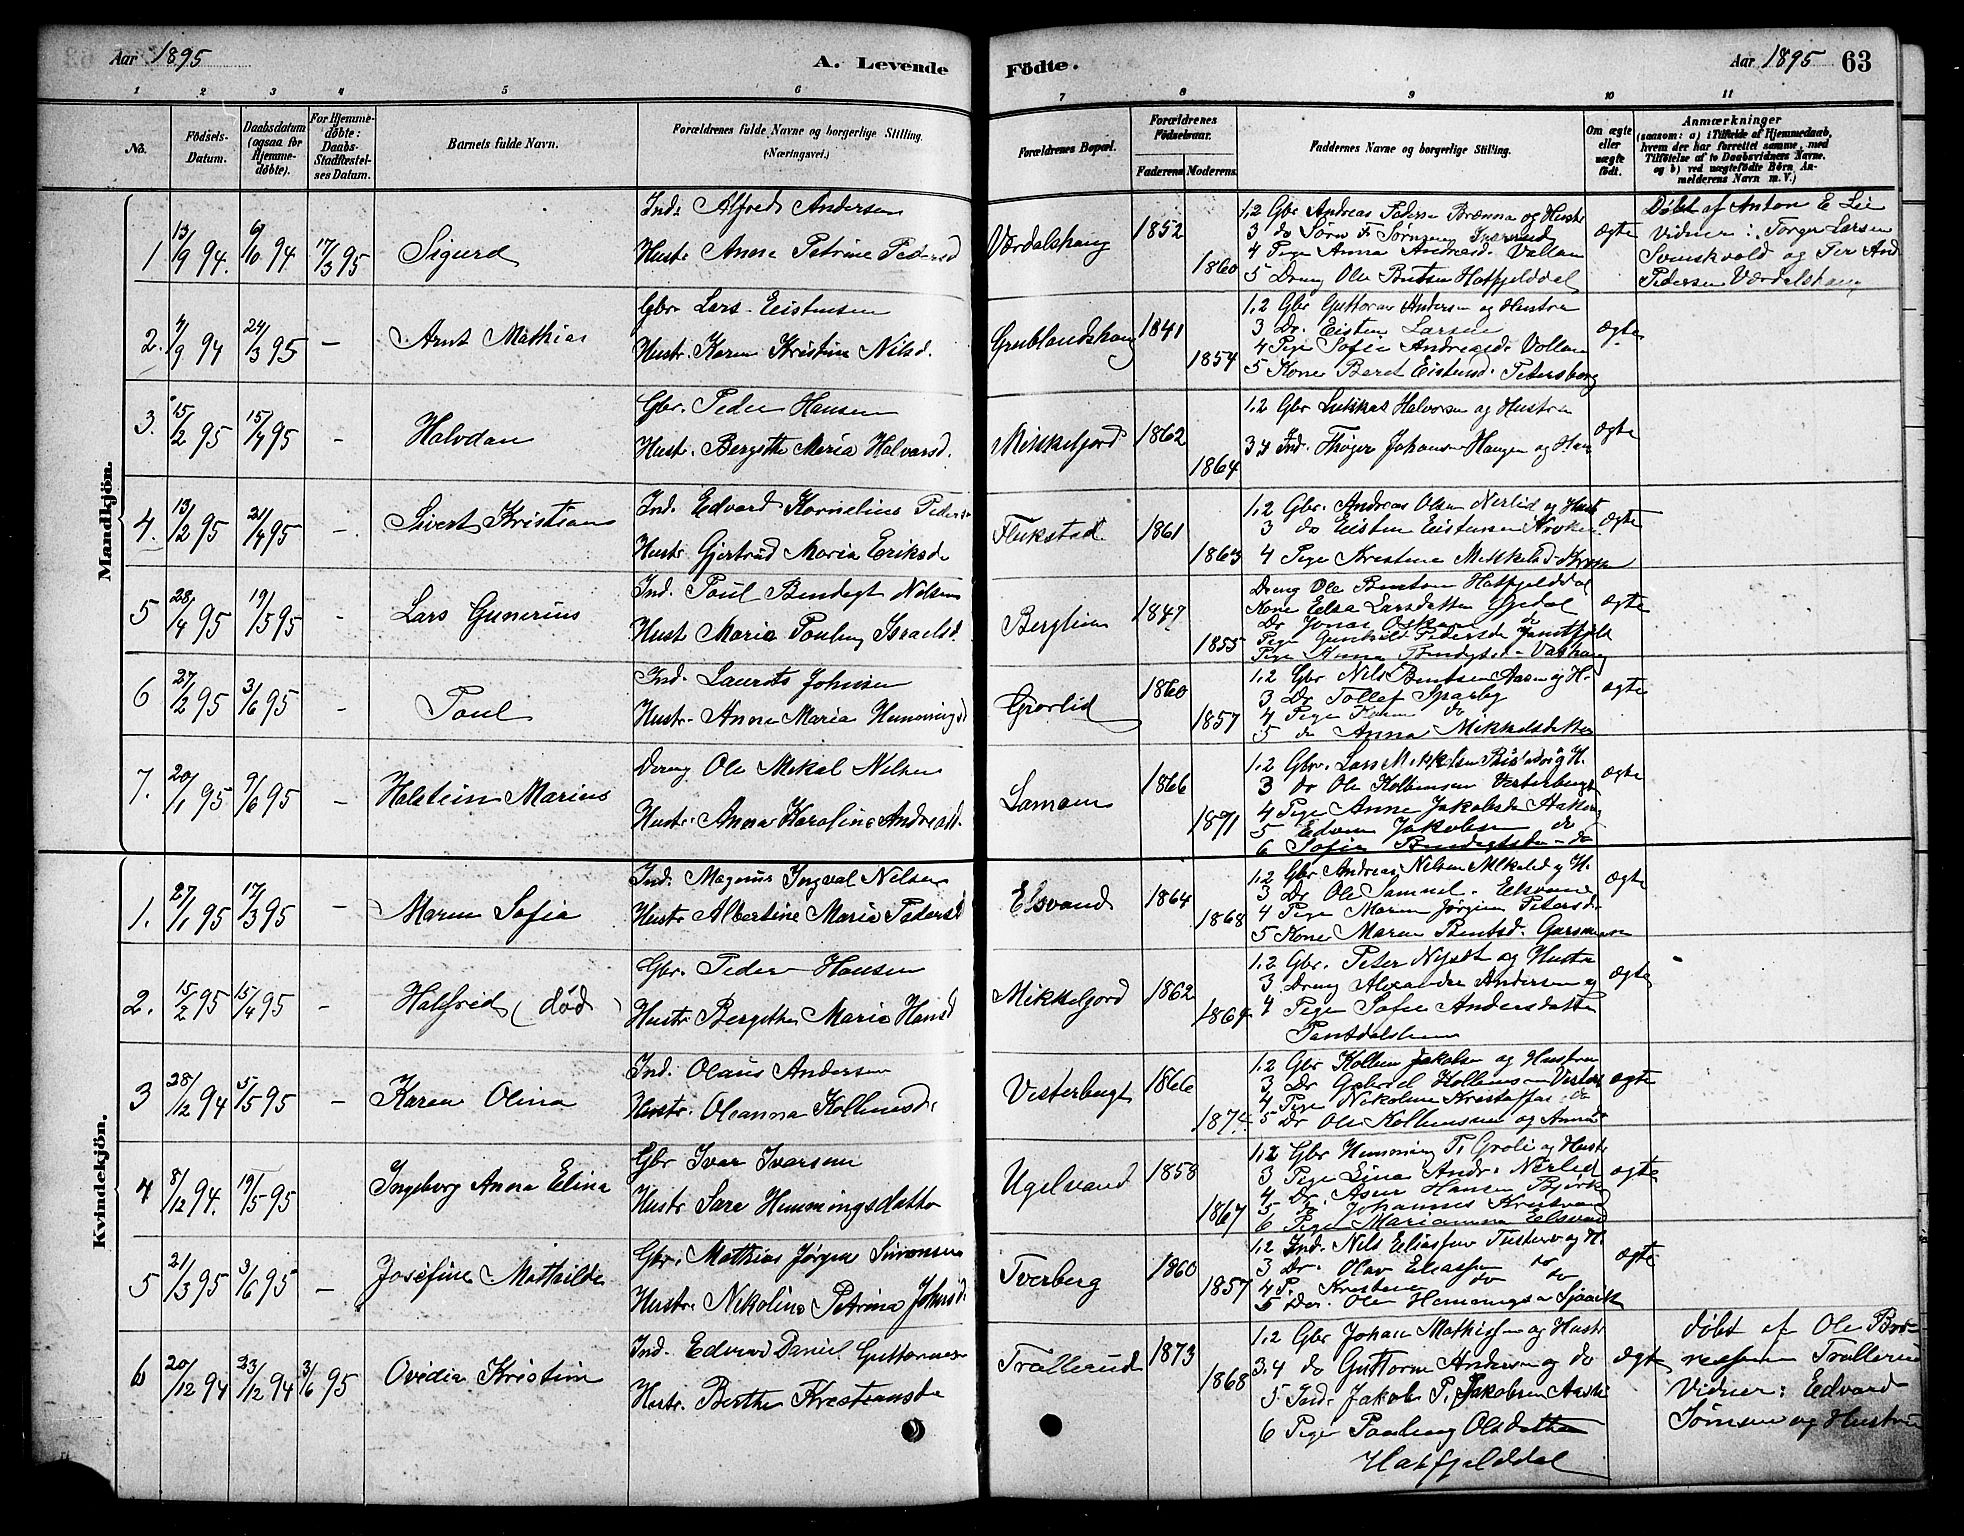 Aar 1895
A. Levende
Födte.
Aar 1895 63
1 2 3 4 5 6 7 8 9 10 11
No.
Födsels-Datum.
Daabsdatum (ogsaa for Hjemmedöbte).
For Hjemmedøbte: Daabs-Stadfæstelses Datum.
Barnets fulde Navn.
Forældrenes fulde Navne og borgerlige Stilling. (Næringsvei.)
Forældrenes Bopæl.
Forældrenes Födselsaar.
Faderens Moderens.
Faddernes Navne og borgerlige Stilling.
Om ægte eller uægte født.
Anmærkninger (saasom: a) i Tilfælde af Hjemmedaab, hvem der har forrettet samme, med Tilföielse af to Daabsvidners Navne, og b) ved uægtefödte Börn Anmelderens Navn m. V.)
Mandkjön.
1 13/9 94. 6/10 94 17/3 95 Sigurd
Ind. Alfred Andersen
Hustr. Anna Petrine Pedersd
Værdalshaug 1852 1860
1,2 Gbr Andreas Pedersen Brænna og Hustr
3 do Sørn F Sørnsen
4 Pige Anna Andreasd. Vollan
5 Dreng Ole Bentsen Hatfjelddal
ægte
Døbt af Anton E Lie
Vidner: Torger Larsen
Svenskvold og Per And
Pedersen Værdalshaug
2. 4/9 94 24/3 95 – Arnt Mathias
Gbr. Lars Eistensen
Hustr. Karen Kristine Nilsd.
Grublandshaug 1841 1854
1,2 Gbr Guttorm Andersen og Hustru
3 Dr. Eisten Larsen
4 Pige Sofie Andreasd. Vollan
5 Kone Beret Eistensd. Petersborg
ægte
3. 15/2 95 15/4 95 – Halvdan
Gbr. Peder Hansen
Hustr. Bergitte Maria Halvarsd.
Mikkeljord 1862 1864
1,2 Gbr Lukkas Halvorsen og Hustru
3 4 Ind. Thøger Johansen Haugen og Hus
ægte
4. 13/2 95 21/4 95 – Sivert Kristian
Ind. Edvard Kornelius Peders
Hustr Gjertrud Maria Eriksd
Flukstad 1861 1863
1,2 Gbr. Andreas Olsen Nerlid og Hust
3 do Eisten Eistensen
4 Pige Kristine
ægte
5 28/4 95 19/5 95 – Lars Gunerius
Ind. Poul Bendegt Nilsen
Hustr Maria Pouline Israelsd.
Berglien 1847 1855
Dreng Ole Bentsen Hatfjelddal
Kone Elsa Larsdatter
Dr Jonas Oskar
Pige Gunhild Pedersd.
Pige Anna Bendegtsd.
ægte
6 27/2 95 3/6 95 – Poul
Ind. Laurits Johnsen
Hustr. Anna Maria Hemmingsd
Grorlid 1860 1857
1,2 Gbr Nils Bentsen Aasen og H.
3 Dr Tollef Sparby
4 Pige do
5 do Anna Mikkelsdatter
ægte
7. 20/1 95 9/6 95 – Halstein Marius
Dreng Ole Mikal Nilsen
Hustr. Anna Karoline Andreasd.
Lamoen 1866 1871
1,2 Gbr. Lars Mikkelsen og H.
3 Dr Ole Kolbensen Vesterbugt
4 Pige Anne Jakobsda
5 Edvin Jakobsen do
6 Sofie Bendegtsda – do
ægte
Kvindekjön.
1. 27/1 95 17/3 95 – Maren Sofia
Ind. Magnus Ingval Nilsen
Hustr Albertine Maria Pedersd
Elsvand 1864 1868
1,2 Gbr Andreas Nilsen og H.
3 Dr Ole Samuel. Elsvand
4 Pige Maren Jørgine Petersd.
5 Kone Maren Bentsd.
ægte
2. 15/2 95 15/4 95 – Halfrid (død)
Gbr. Peder Hansen
Hustr Bergithe Maria Hansd
Mikkeljord 1862 1864
1,2 Gbr. Peter Nysdt og Hustru
3 Dreng Alexander Andersen og
4 Pige Sofie Andersdatter
Pantdalslien
ægte
3 28/12 94 5/5 95 – Karen Olina
Ind. Olaus Andersen
Hustr. Oleanna Kolbensd.
Vesterbugt 1866 1874
1,2 Gbr Kolben Jakobsen og Hustru
3 Dr Gabriel Kolbensen
4 Pige Nikoline
5 Dr Ole Kolbensen og Anna
ægte
4 8/12 94. 19/5 95 Ingeborg Anna Elina
Gbr Ivar Ivarsen
Hustr Sara Hemmingsdatter
Ugelvand 1858 1867
1,2 Gbr Hemming P. Groli og Hustr
3 Pige Lina Andr. Nerlid
4 Dr. Hansen
5 do Johannes
6 Pige Marianna Elsvand
ægte
5 21/3 95 3/6 95 – Josefine Mathilde
Gbr. Mathias Jørgen Simonsen
Hustr. Nikolina Petrina Johnsd.
Tverberg 1860 1857
1,2 Ind. Nils Eliassen og H
3 Dr. Olav Eliassen do
4 P. Krestine do
5 Dr. Ole Hemmingsen
ægte
6 20/12 94 23/12 94 3/6 95 Ovidia Kristine
Ind. Edvard Daniel Guttormsen
Hustr. Berthe Krestiansda
Trallerud 1873 1868
1,2 Gbr Johan Mathisen og Hustr
3,4 do Guttorm Andersen og do
5 Ind. Jakob P. Jakobsen
6 Pige Paulina Olsdatter
Hatfjelddal
ægte
døbt af Ole
Trallerud
Vidner: Edvard
Sørnsen og Hustru